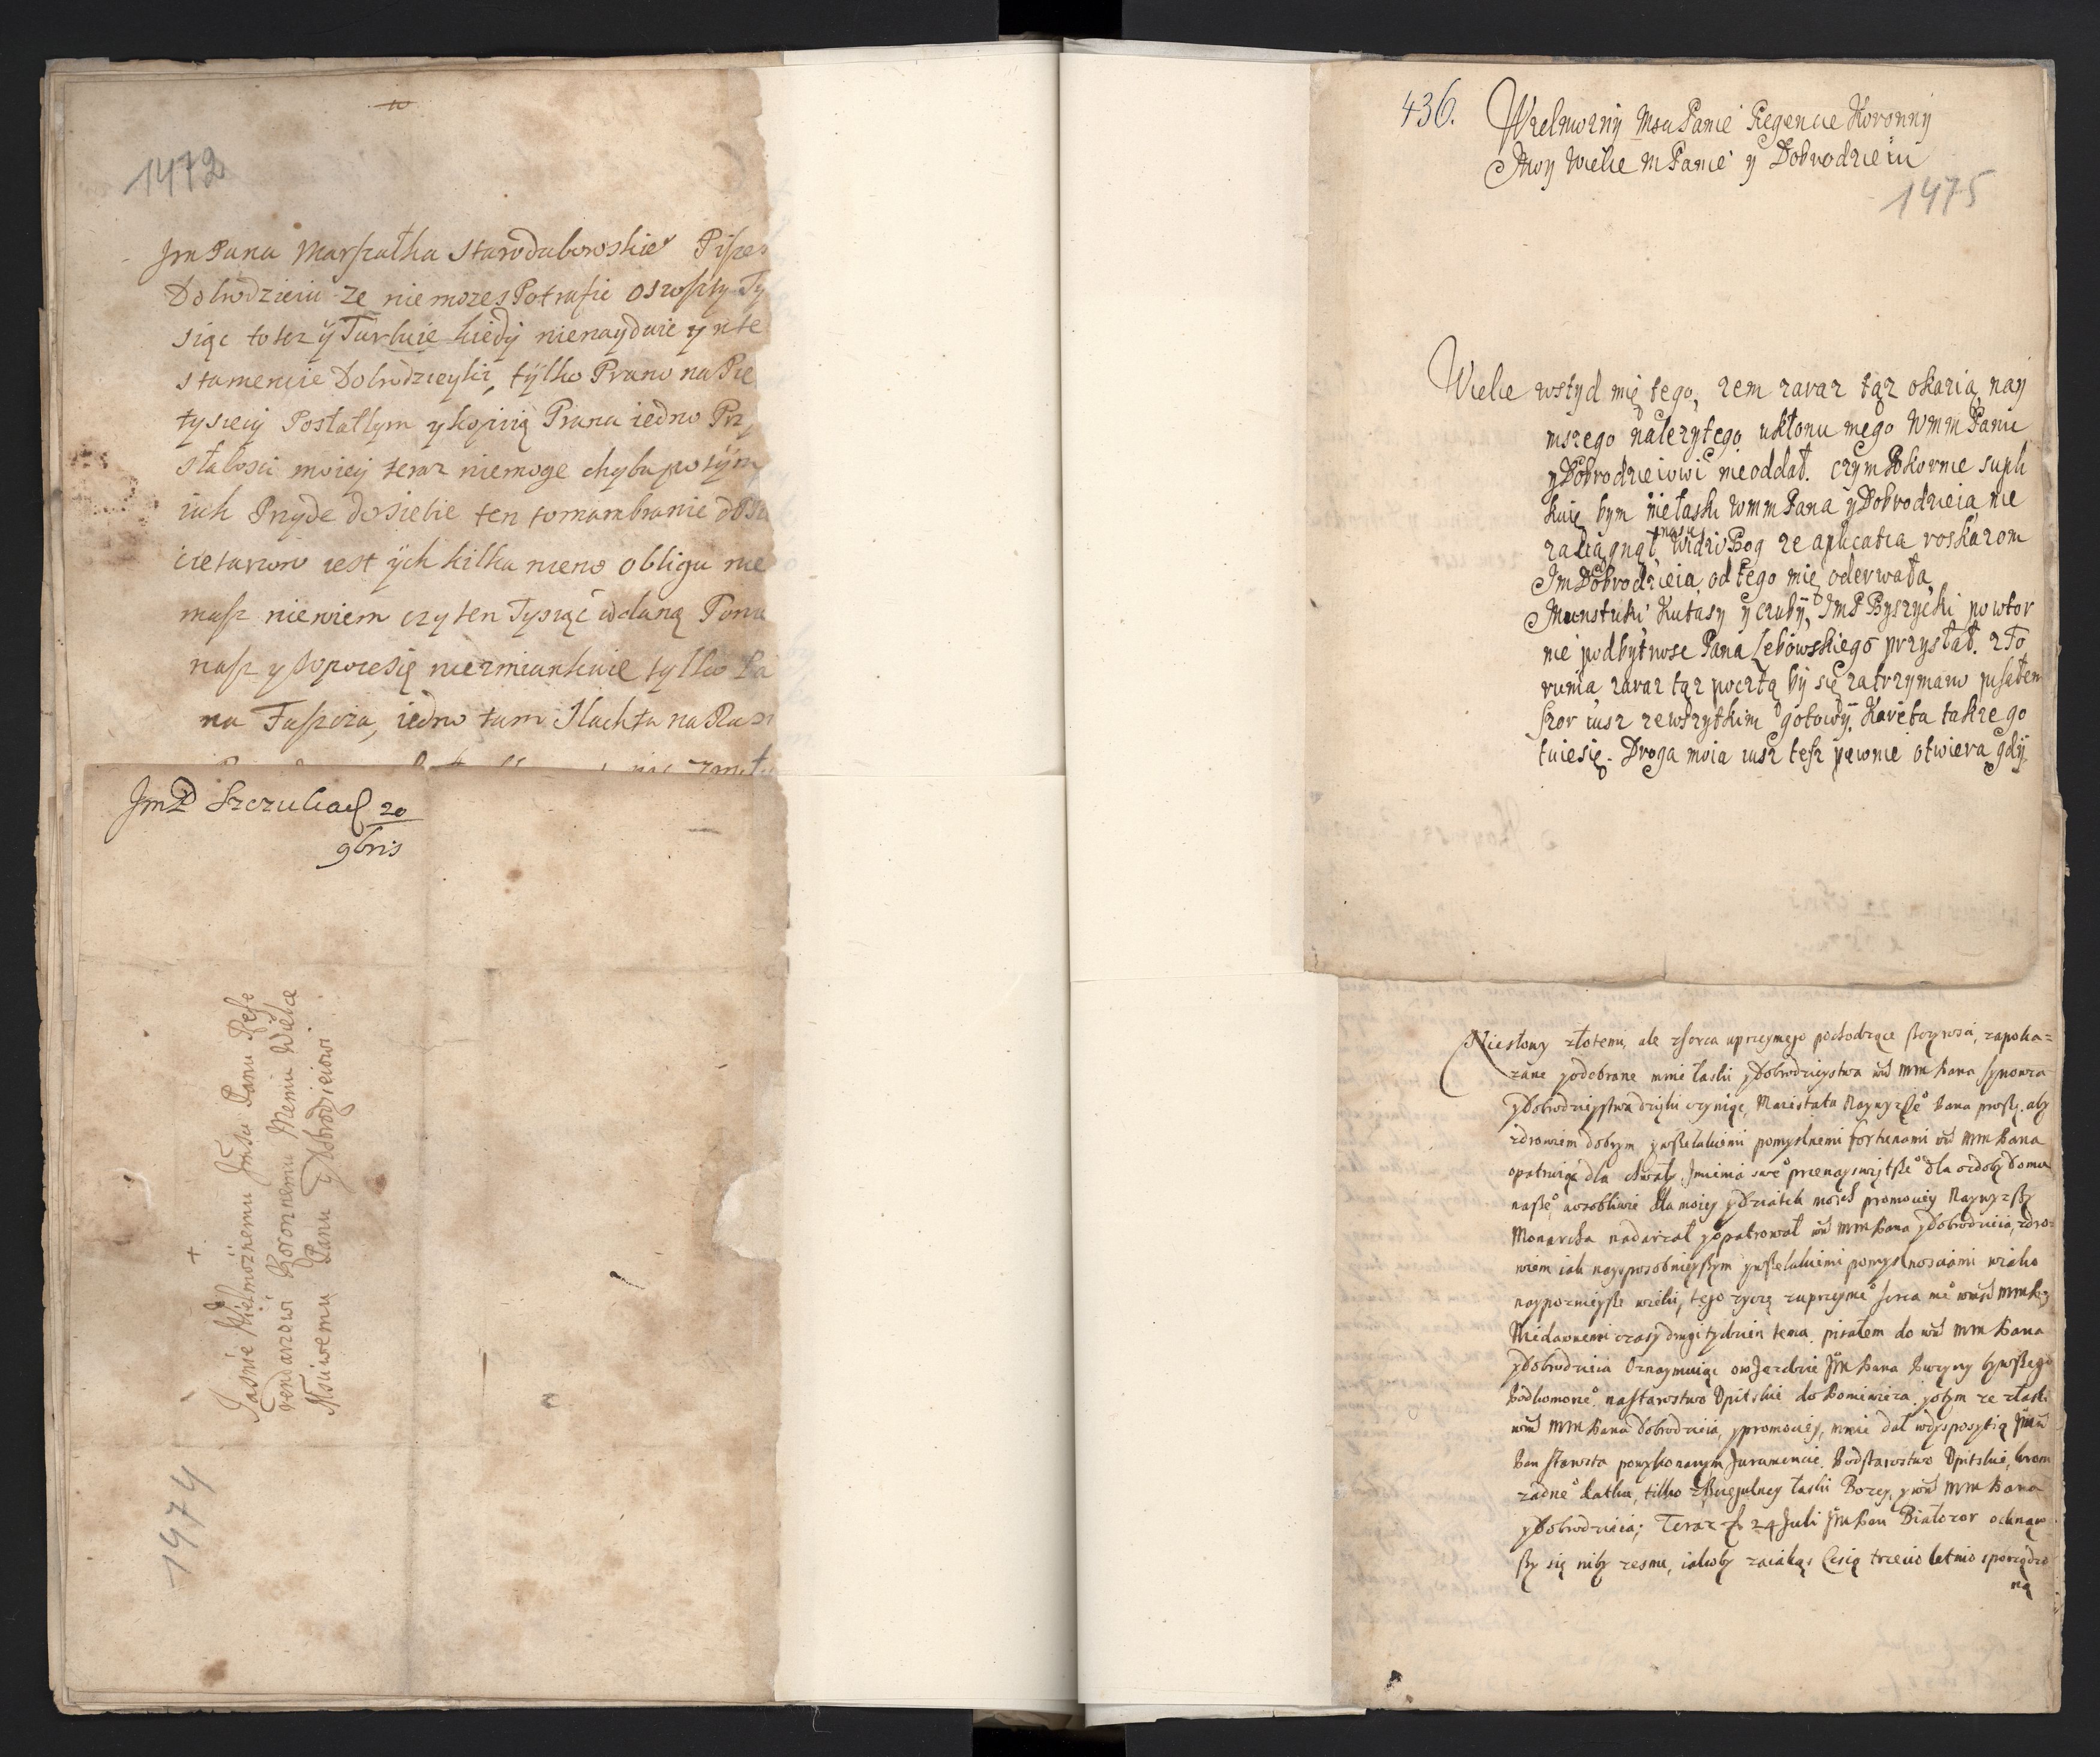 1472
Jm Pana Marszałka Starodubowskie° Piszes
Dobrodzieiu ze niemozes Potrafic
siąc totez ÿ Turkuie kiedÿ nienayduie y w te
stamencie Dobrodzieyki, tÿlko Prawo na Pie
tysiecy Posłałbym y kopiią Prawa iedno Prz
słabosci moieÿ teraz niemoge chyba potÿm
iak Przyde do siebie ten to mambranie
jest ÿch kilka nieno obligu nie
masz niewiem czy ten Tysiąc
nasz y niezmiankuie tylko Pa
na Taszcza, iedno tam Slachta na
JmP Szczuka d 20
9bris
+
Jasnie Wielmoznemu Jmsu Panu Refe
rendarzowi Koronnemu Memu Wielce
Msciwemu Panu y Dobrodzieiowi
1474
436.
Wielmozny Msu Panie Regencie Koronny
Moy Wielie M Panie y Dobrodzieiu
1475
Wielie wstyd mię tego, zem zaraz tąz okazią nay
mszego nalezytego ukłonu mego WMM Panu
y Dobrodzieiowi nieoddał. czym Pokornie supli
kuię bym niełaski WMM Pana y Dobrodzieia nie
zaciągnął na się widzi Bog ze aplicatia roskazom
Jm Dobrodzieia od tego mię oderwała
Munstuki Kutasy y czuby, JmP Byszycki powtor
nie podbytnosc Pana Lebowskiego przysłał. z To
runia zaraz tąz pocztą by się zatrzymano pisałem
Szor iusz zewszytkim gotowÿ. Kareta takze go
tuie się. Droga moia iusz tesz pewnie otwiera gdÿ
Niesłowy złotemi, ale zserca uprzeymego pochodzące zapoka=
zane y odebrane mnie łaski y Dobrodzieystwa WM MM Pana synowca
y Dobrodzieystwa dzięki czyniąc, Maiestatu Naywyzsze° Pana proszę. aby
zdrowiem dobrym y wszelakiemi pomyslnemi fortunami WM MM Pana
opatruiąc dla chwały Jmienia swe° przenayswiętsze° dla ozdoby Domu
nasze°, aosobliwie dla moiey y Dziatek moich promociey Naywyzszy
Monarcha nadarzał y opatrował WM MM Pana y Dobrodzieia, zdro=
wiem iak naysposobnieyszym y wszelakiemi pomyslnosciami wieku
naypoznieysze wieki, tego zyczę zuprzeyme° serca me° WM MM Pa
Niedawnemi czasy drugi tydzien temu pisałem do WM MM Pana
y Dobrodzieia Oznaymuiąc o wJezdzie Jm Pana bywszego
Podkomorze° na starostwo Upitskie do Poniewieza. y otym ze złaski
WM MM Pana Dobrodzieia, y promociey, mnie dał wdysposytią Jm
Pan Starosta powykonanym Juramencie. Podstarostwo Upitskie, krom
zadne° datku, tilko zSzczegulney łaski Bozey, y WM MM Pana
y Dobrodzieia; Teraz d 24 Juli Jm Pan Białozor ocknąw
szy się niby zesnu, iakoby zaiakąs Cesią trzecio letnio sporządzo
ną